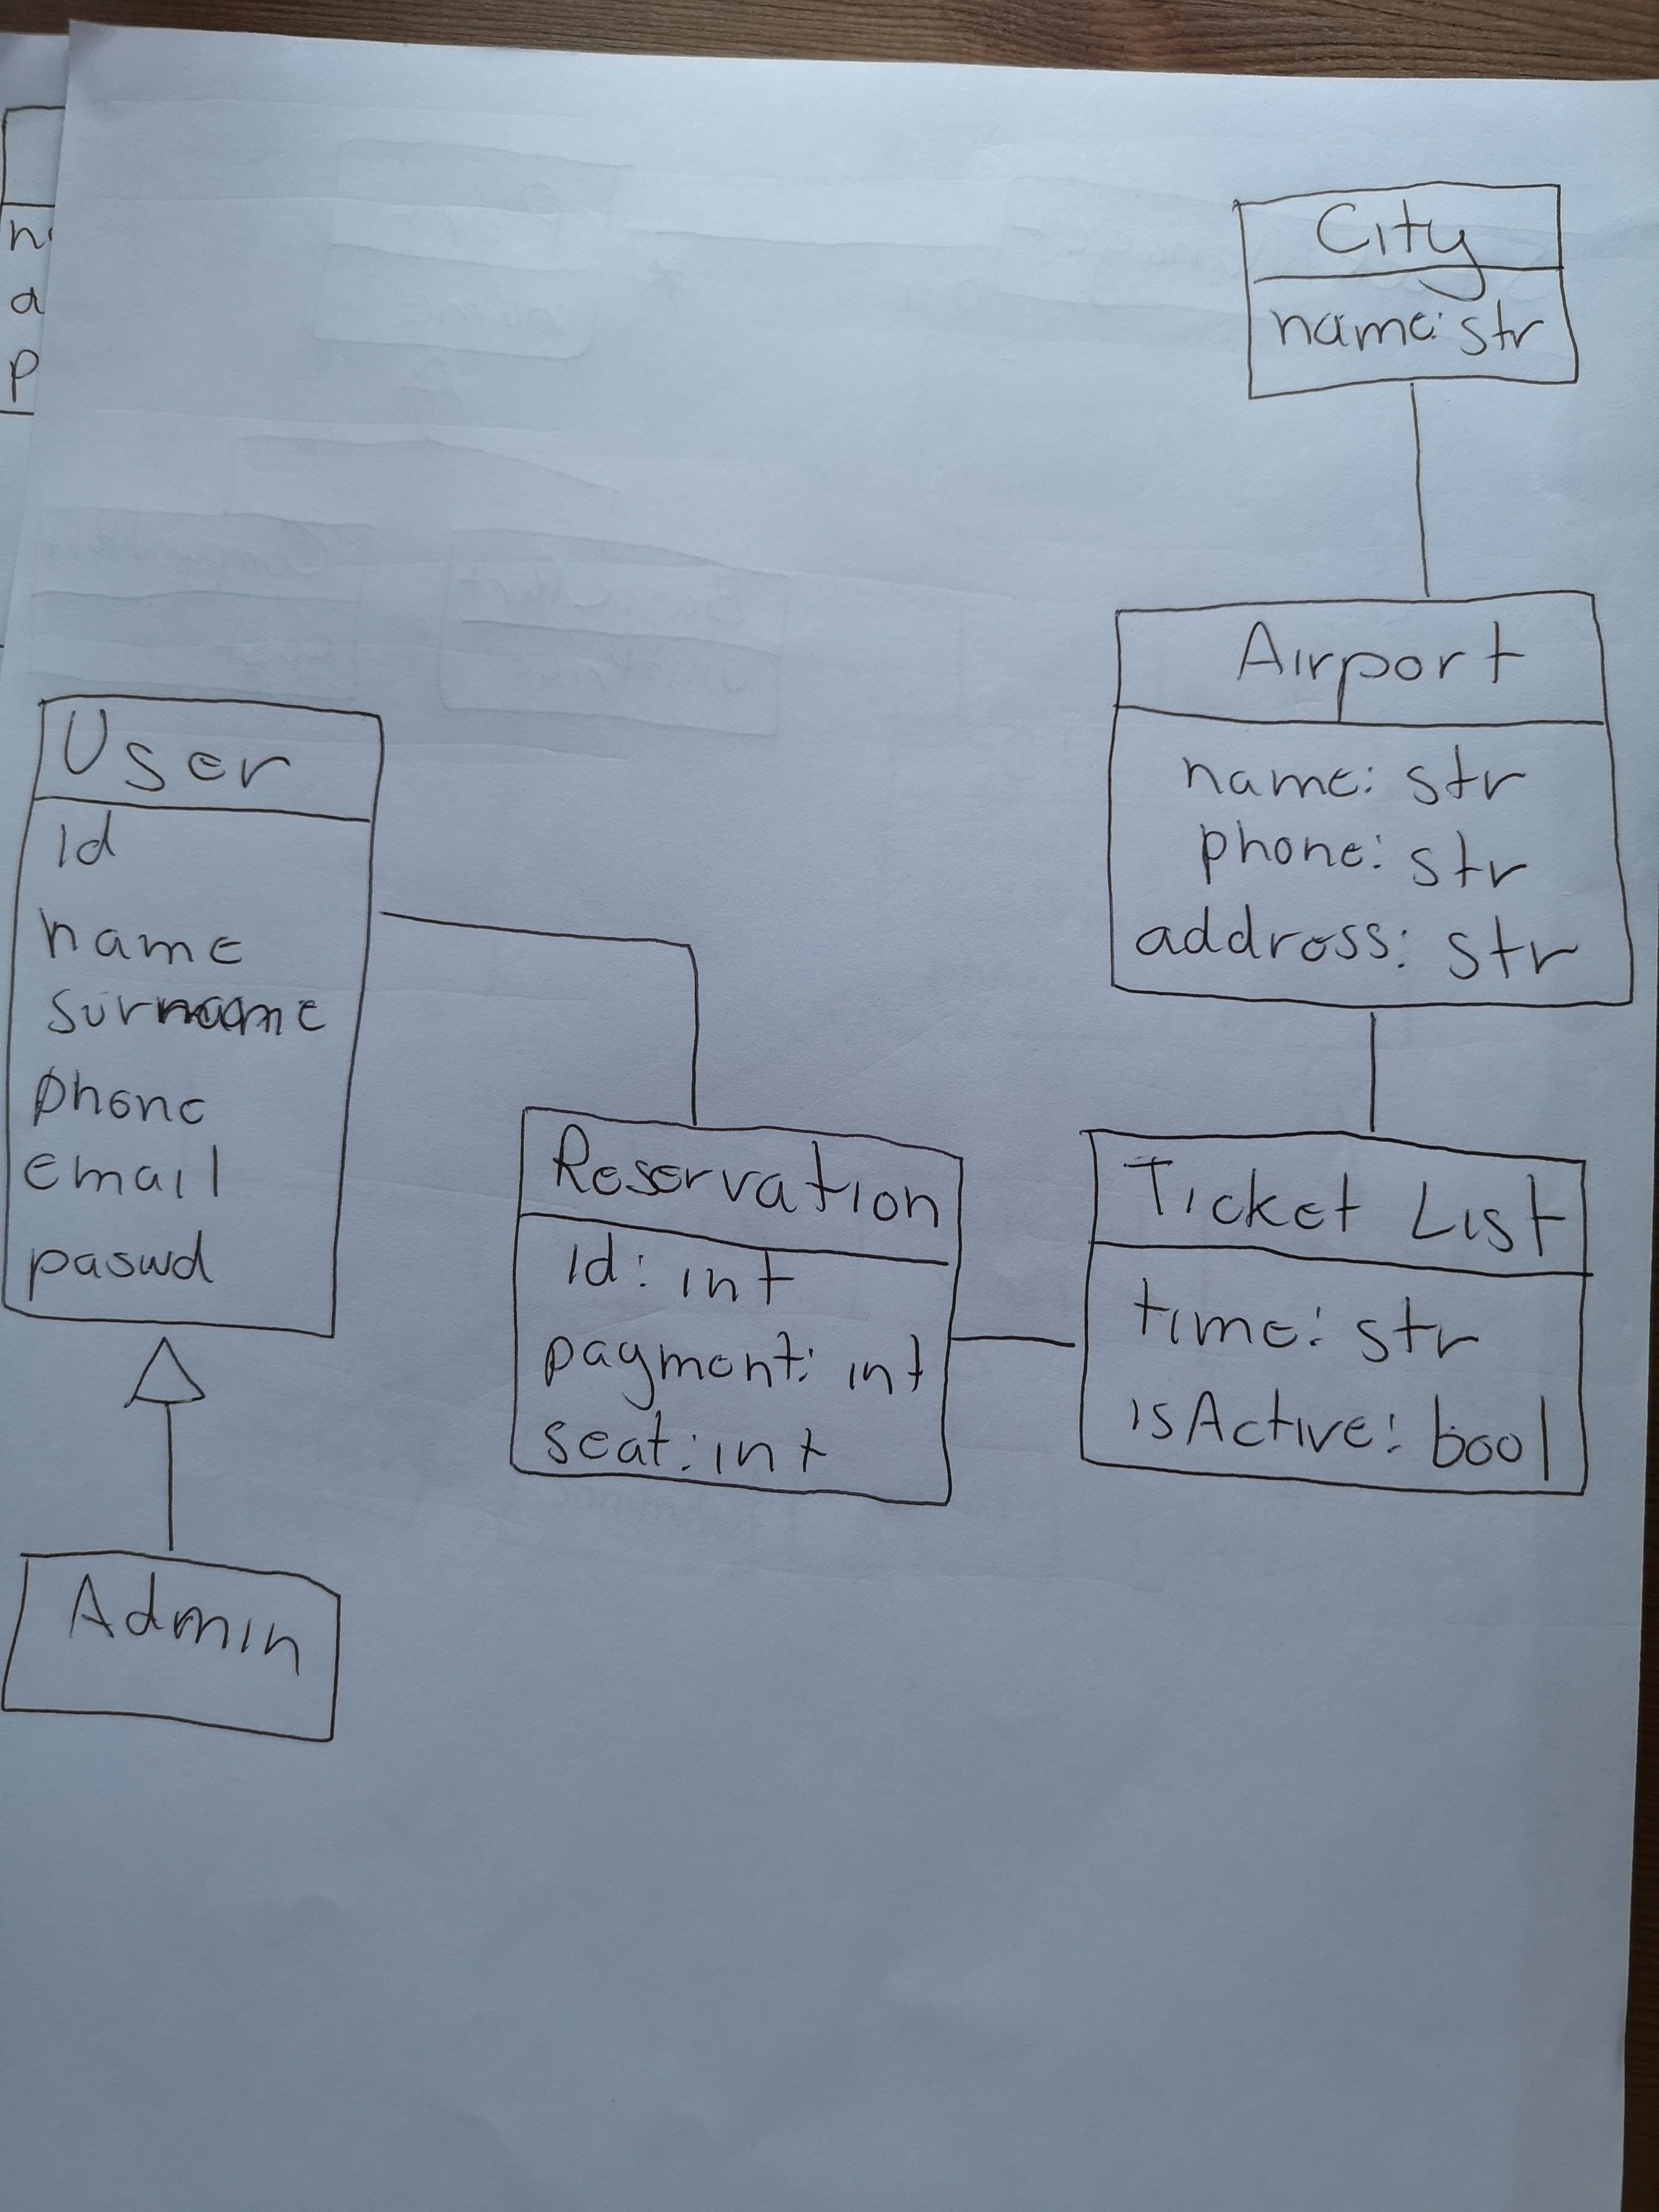 City
name: str
Airport
name: str
phone: str
address: str
User
id
name
surname
phone
email
paswd
Reservation
id: int
payment: int
seat: int
Ticket List
time: str
isActive: bool
Admin
n
a
p